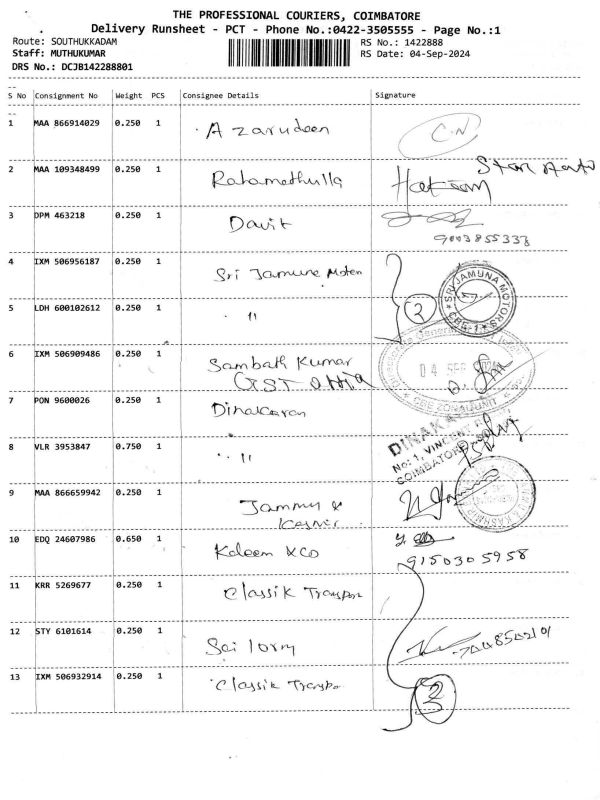 THE PROFESSIONAL COURIERS, COIMBATORE
Delivery Runsheet - PCT - Phone No.:0422-3505555 - Page No.:1
Route: SOUTHUKKADAM RS No.: 1422888
Staff: MUTHUKUMAR RS Date: 04-Sep-2024
DRS No.: DCJB142288801
S No Consignment No Weight PCS Consignee Details Signature
1 MAA 866914029 0.250 1 Azarudeen C.N
2 MAA 109348499 0.250 1 Rahamathulla Hakeem Star Auto
3 DPM 463218 0.250 1 Davit
9003855333
4 IXM 506956187 0.250 1 Sri Jamuna Moters 2 SRI JAMUNA MOTORS CBE-1
5 LDH 600102612 0.250 1 "
6 IXM 506909486 0.250 1 Sambath Kumar 04 SEP 2024
GST
7 PON 9600026 0.250 1 Dinakaran
8 VLR 3953847 0.750 1 " DINAKA
No: 1, VINCENT R
COIMBATORE
9 MAA 866659942 0.250 1 Jammu &
Kasmir
10 EDQ 24607986 0.650 1 Kaleem & Co 9150305958
11 KRR 5269677 0.250 1 Classik Transport
12 STY 6101614 0.250 1 Sai lorry
13 IXM 506932914 0.250 1 Classik Transpo 3